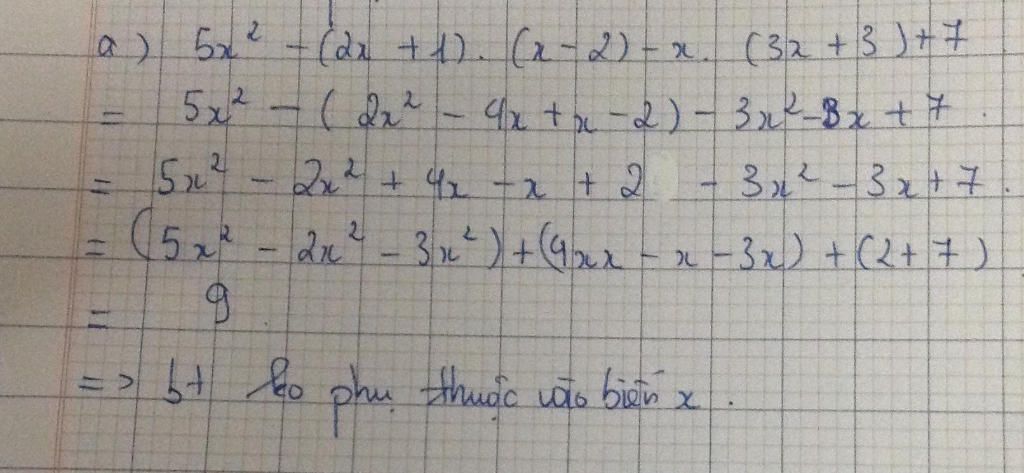 a) 5x² - (2x + 1). (x - 2) - x. (3x + 3) + 7
= 5x² - (2x² - 4x + x - 2) - 3x² - 3x + 7.
= 5x² - 2x² + 4x - x + 2 - 3x² - 3x + 7.
= (5x² - 2x² - 3x²) + (4xx - x - 3x) + (2 + 7)
= 9.
=> bt ko phụ thuộc vào biến x.